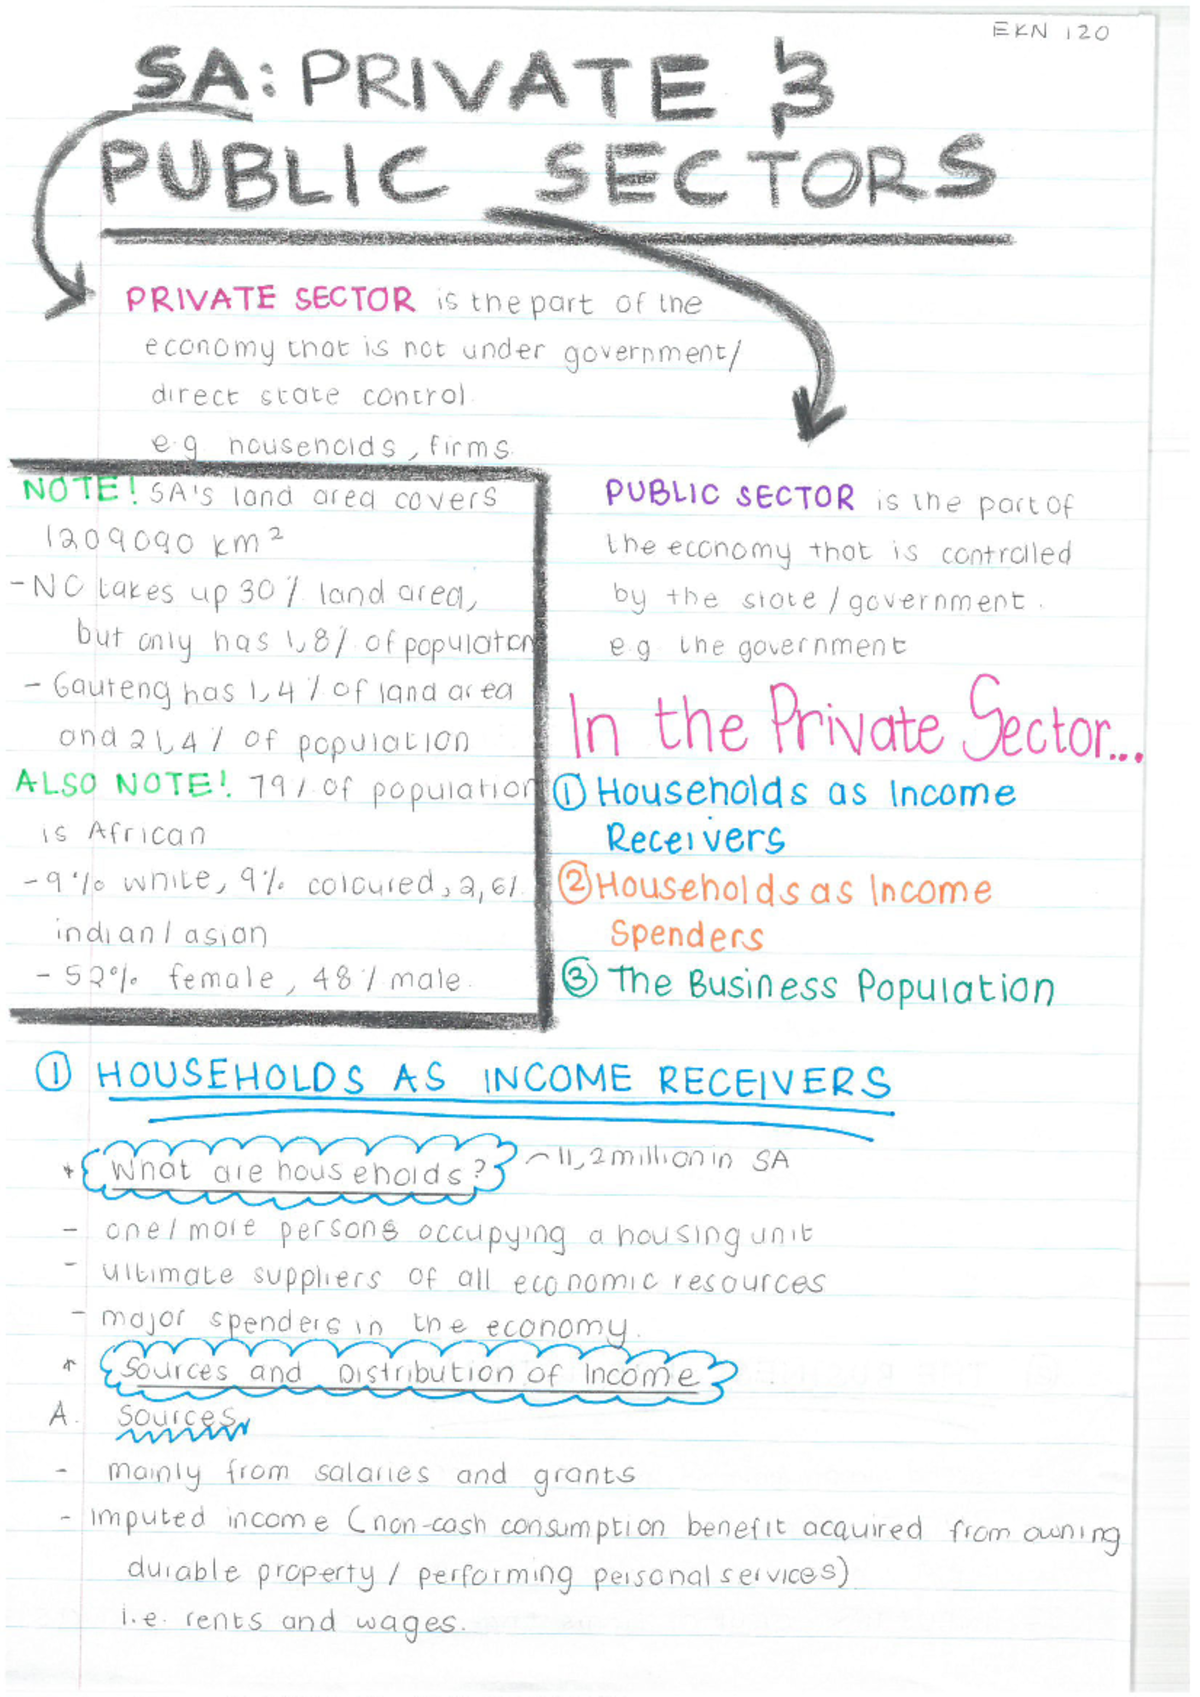 EKN 120
SA: PRIVATE &
PUBLIC SECTORS
PRIVATE SECTOR is the part of the
economy that is not under government/
direct state control
e.g households, firms.
NOTE! SA's land area covers
1209090 km²
- NC takes up 30% land area,
but only has 1,8% of population
- Gauteng has 1,4% of land area
and 21,4% of population
ALSO NOTE! 79% of population
is African
- 9% white, 9% coloured, 2,6%
indian/asian
- 52% female, 48% male.
PUBLIC SECTOR is the part of
the economy that is controlled
by the state/government.
e.g. the government
In the Private Sector...
① Households as Income
Receivers
② Households as Income
Spenders
③ The Business Population
① HOUSEHOLDS AS INCOME RECEIVERS
* What are households? ~11,2 million in SA
- one/more persons occupying a housing unit
- ultimate suppliers of all economic resources
- major spenders in the economy.
* Sources and Distribution of Income
A. Sources
- mainly from salaries and grants
- Imputed income (non-cash consumption benefit acquired from owning
durable property/performing personal services)
i.e. rents and wages.